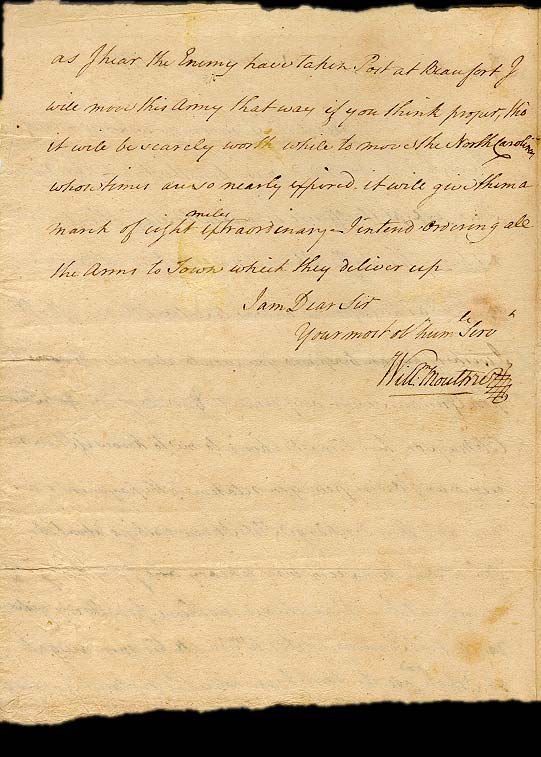 as I hear the Enemy have taken Post at Beaufort I
will move this Army that way if you think proper, tho
it will be scarcely worth while to move the North Carolin
whose times are so nearly expired. it will give them a
march of eight miles extraordinary – I intend ordering all
the Arms to Town which they deliver up
I am Dear Sir
Your most obt humle Servt
Willm Moultrie